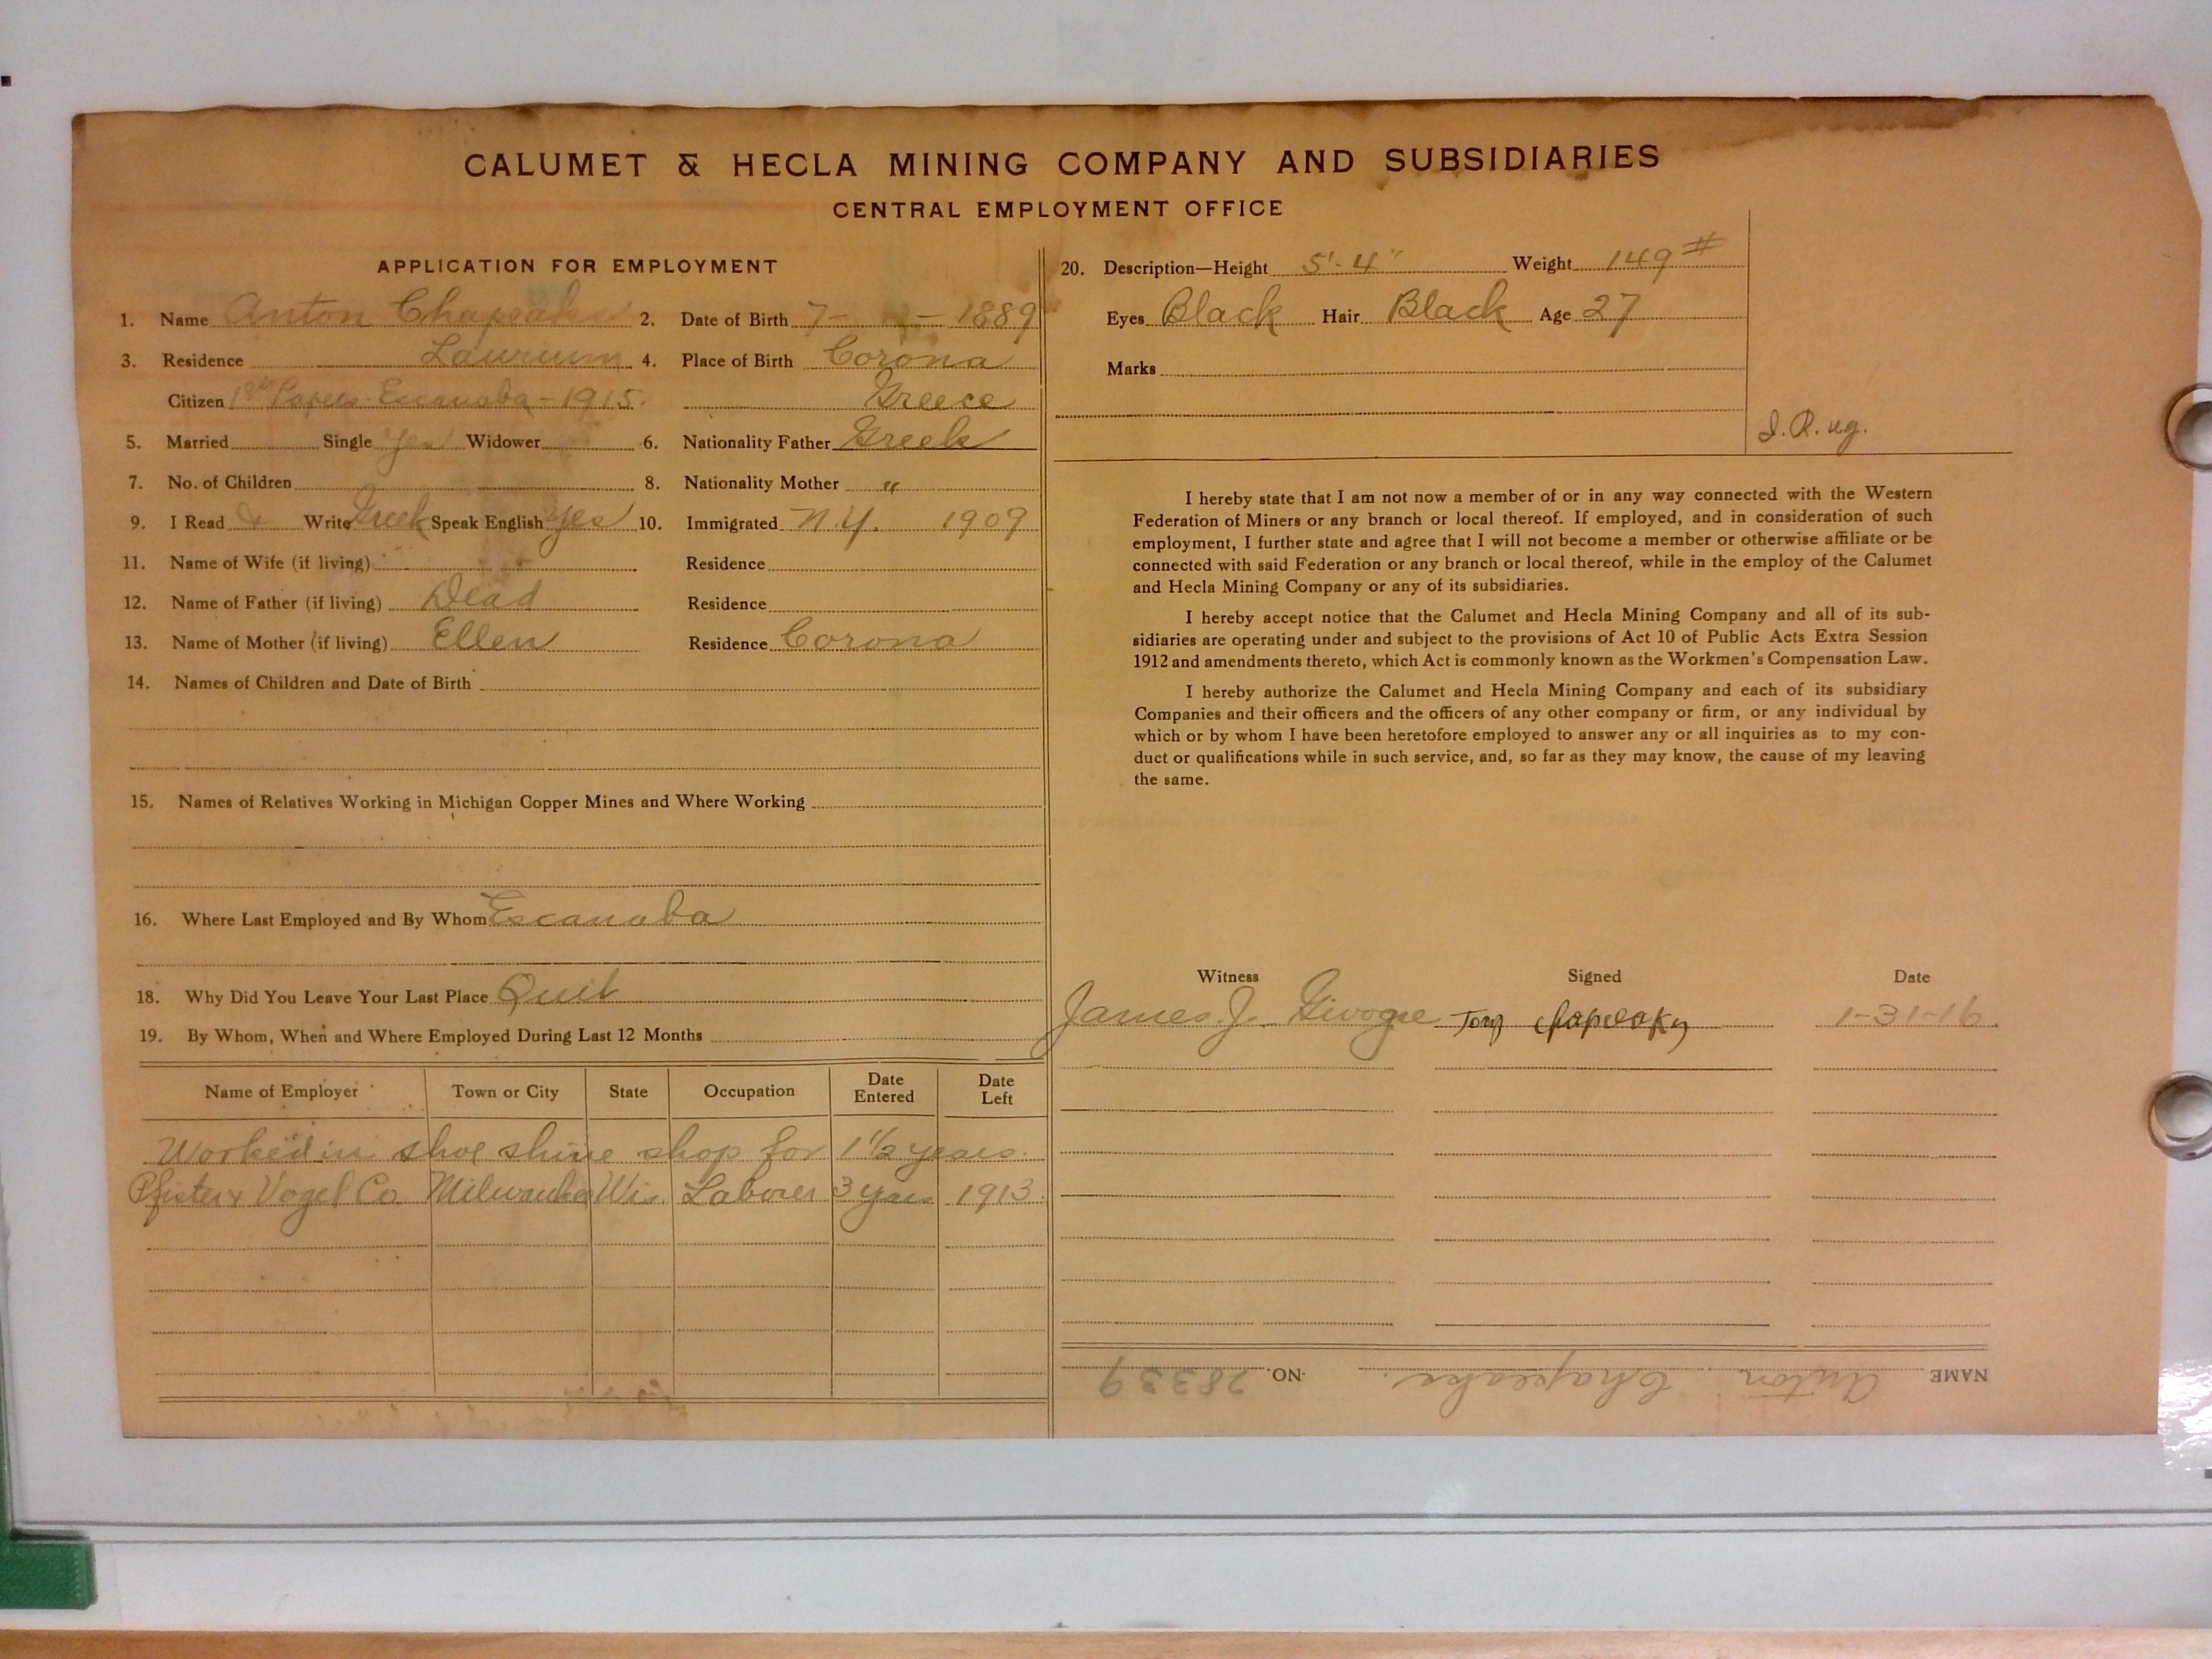 CALUMET & HECLA MINING COMPANY AND SUBSIDIARIES
CENTRAL EMPLOYMENT OFFICE
APPLICATION FOR EMPLOYMENT
1. Name Anton Chapeake 2. Date of Birth 7- - 1889
3. Residence Laurium 4. Place of Birth Corona
Citizen 1st Papers-Escanaba-1915. Greece
5. Married Single Yes Widower 6. Nationality Father Greek
7. No. of Children 8. Nationality Mother "
9. I Read & Write Greek Speak English Yes 10. Immigrated N.Y. 1909
11. Name of Wife (if living) Residence
12. Name of Father (if living) Dead Residence
13. Name of Mother (if living) Ellen Residence Corona
14. Names of Children and Date of Birth
15. Names of Relatives Working in Michigan Copper Mines and Where Working
16. Where Last Employed and By Whom Escanaba
18. Why Did You Leave Your Last Place Quit
19. By Whom, When and Where Employed During Last 12 Months
Name of Employer Town or City State Occupation Date Entered Date Left
Worked in shoe shine shop for 1 1/2 years.
Pfister & Vogel Co Milwaukee Wis. Laborer 3 years 1913
20. Description—Height 5'-4" Weight 149#
Eyes Black Hair Black Age 27
Marks
I hereby state that I am not now a member of or in any way connected with the Western
Federation of Miners or any branch or local thereof. If employed, and in consideration of such
employment, I further state and agree that I will not become a member or otherwise affiliate or be
connected with said Federation or any branch or local thereof, while in the employ of the Calumet
and Hecla Mining Company or any of its subsidiaries.
I hereby accept notice that the Calumet and Hecla Mining Company and all of its sub-
sidiaries are operating under and subject to the provisions of Act 10 of Public Acts Extra Session
1912 and amendments thereto, which Act is commonly known as the Workmen's Compensation Law.
I hereby authorize the Calumet and Hecla Mining Company and each of its subsidiary
Companies and their officers and the officers of any other company or firm, or any individual by
which or by whom I have been heretofore employed to answer any or all inquiries as to my con-
duct or qualifications while in such service, and, so far as they may know, the cause of my leaving
the same.
Witness Signed Date
James J. 1-31-16
NAME Anton Chapeake. NO. 28339